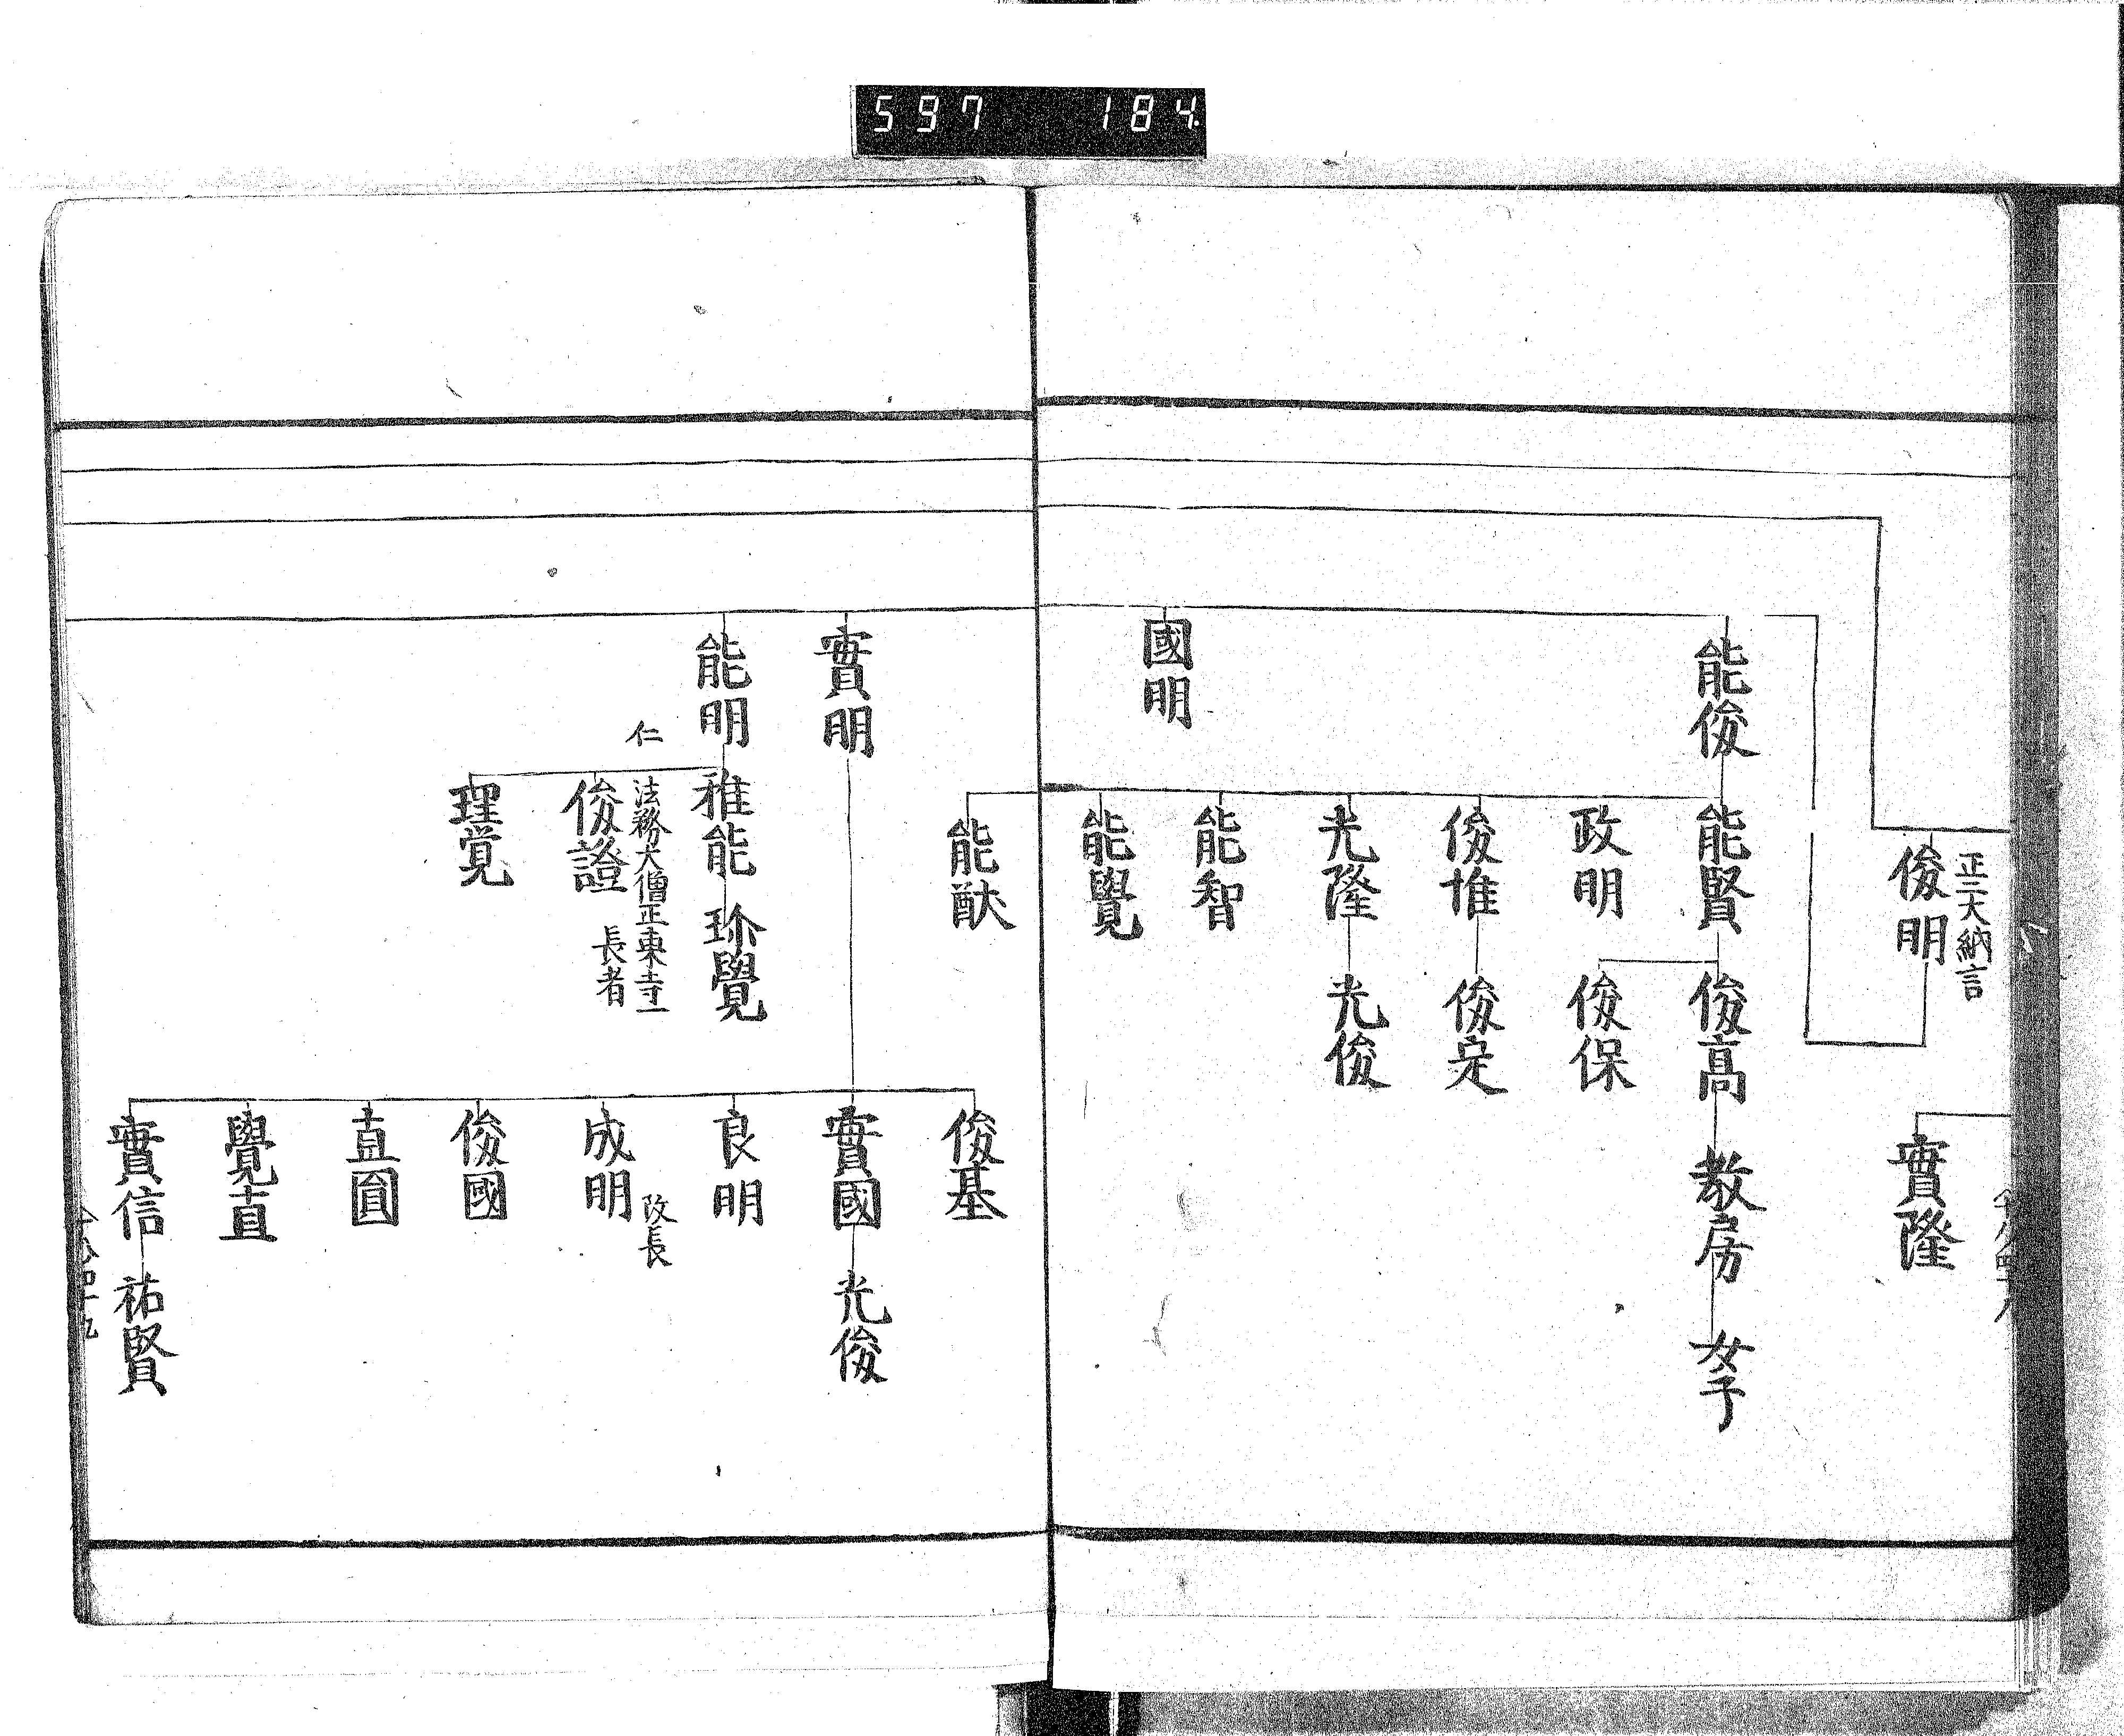 597 184
正二大納言
俊明
實隆
能俊
能賢
俊高
教房
女子
俊保
政明
俊惟
俊定
光隆
光俊
能智
國明
能覺
能猷
俊基
實明
實國
光俊
能明
雅能
珎覺
良明
仁
法務大僧正東寺一
長者
俊證
改長
成明
理覚
俊國
直圓
覺直
實信
祐賢